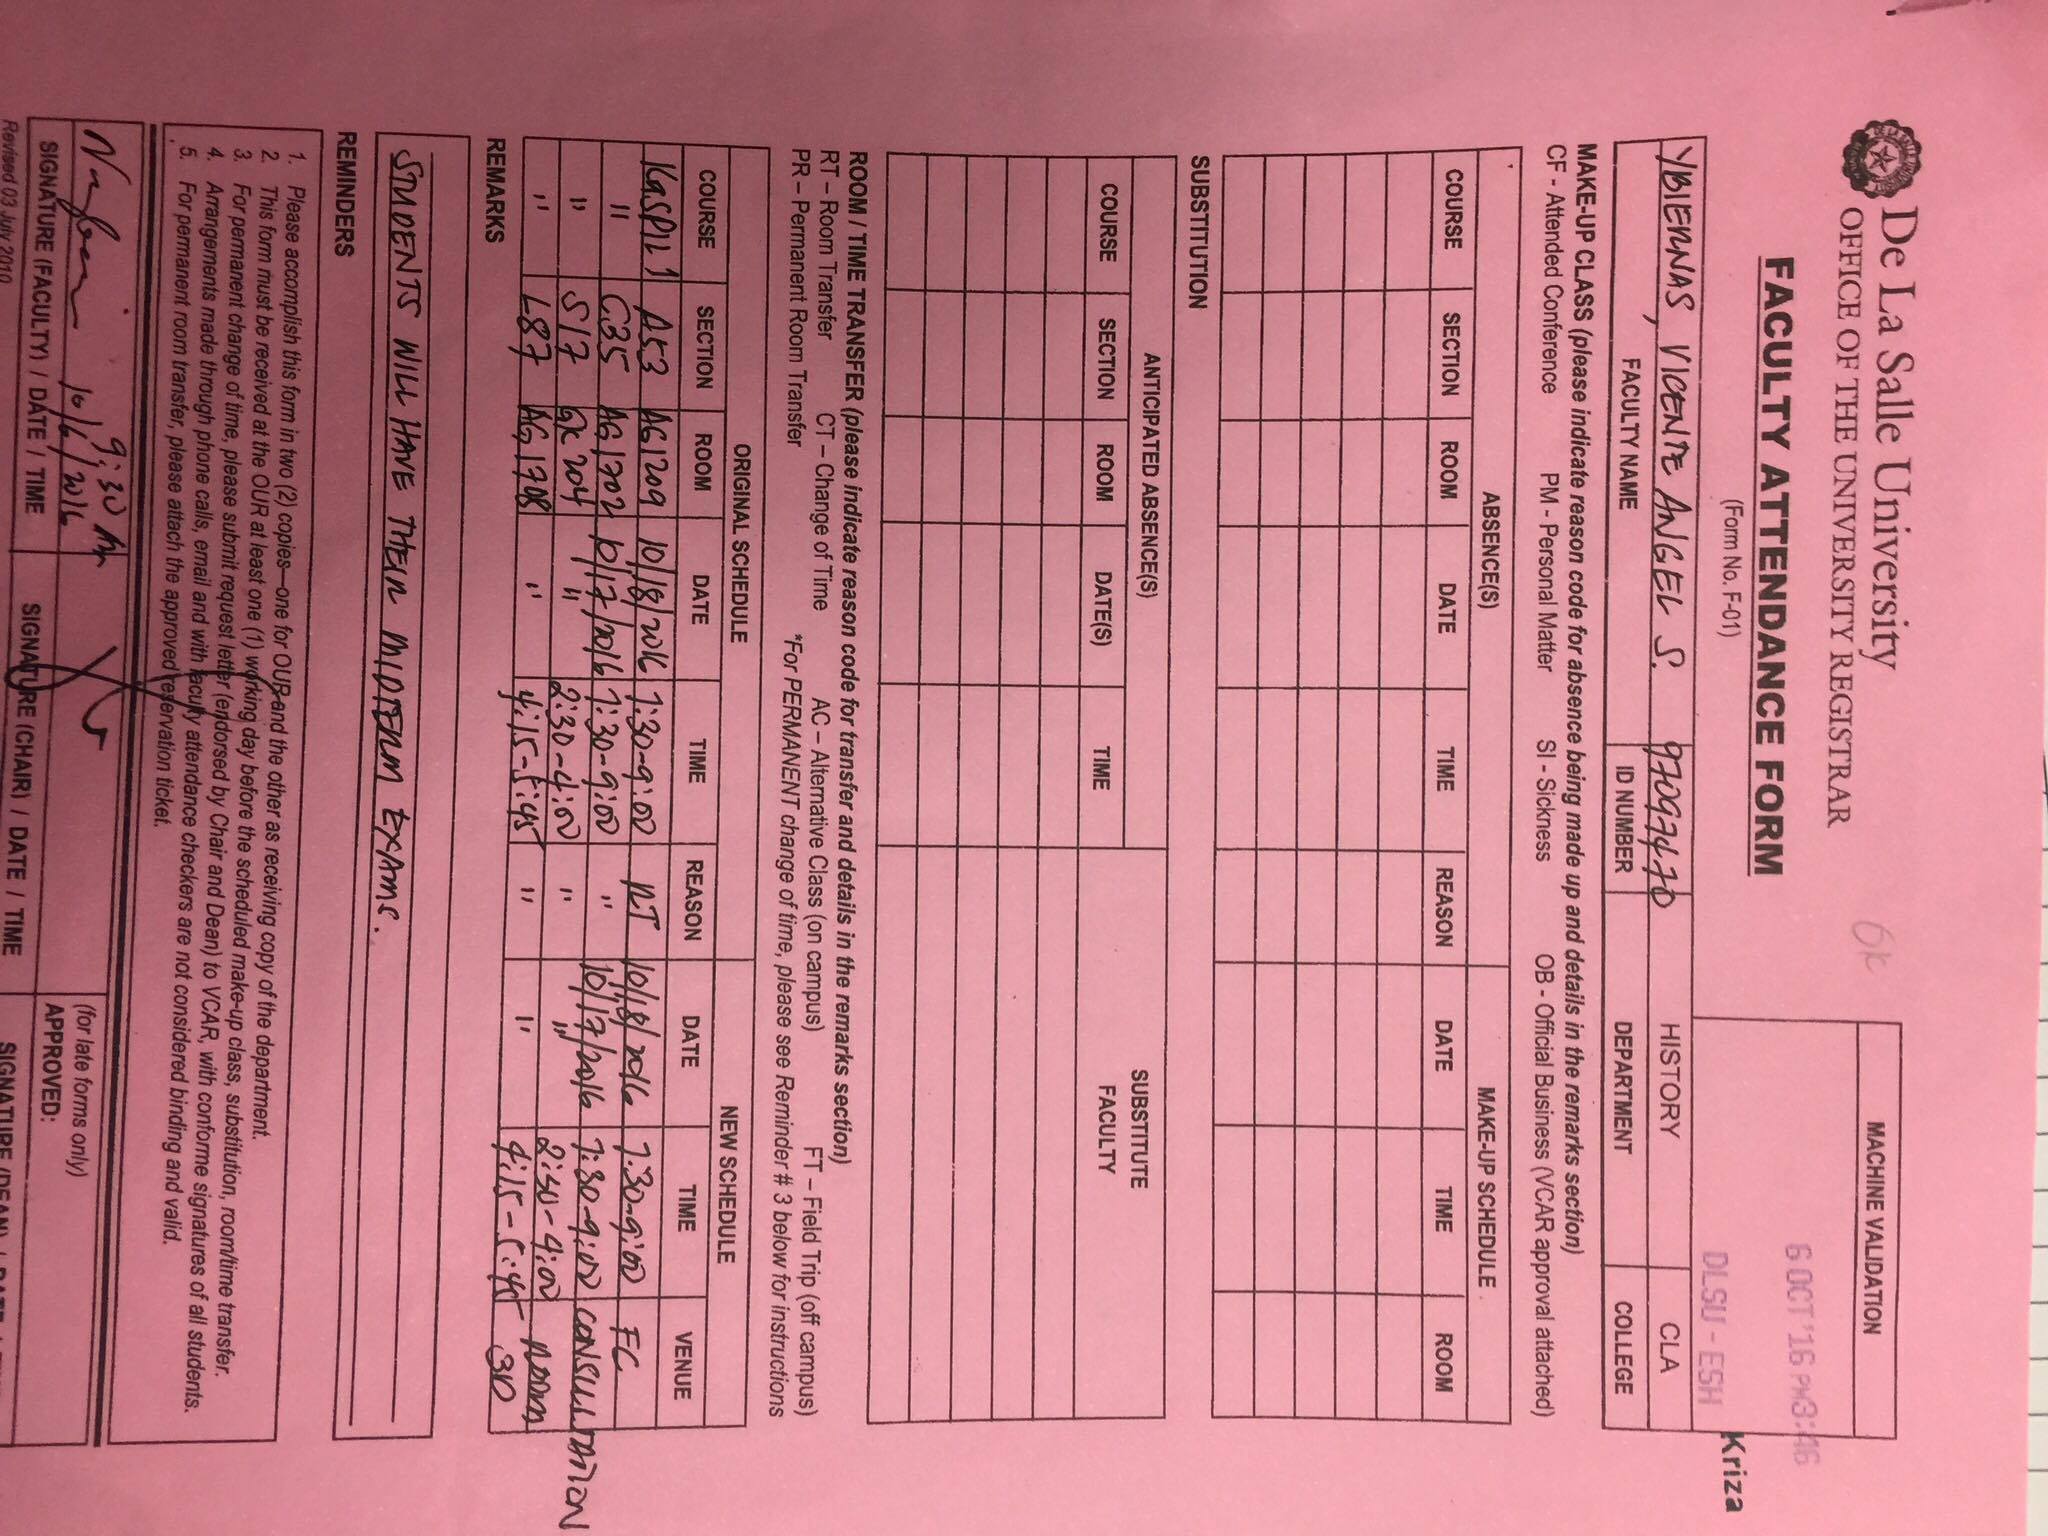 De La Salle University
OFFICE OF THE UNIVERSITY REGISTRAR
OK
MACHINE VALIDATION
6 OCT '16 PM3:46
DLSU - ESH
Kriza
FACULTY ATTENDANCE FORM
(Form No. F-01)
YBIERNAS, VICENTE ANGEL S. 97097470 HISTORY CLA
FACULTY NAME ID NUMBER DEPARTMENT COLLEGE
MAKE-UP CLASS (please indicate reason code for absence being made up and details in the remarks section)
CF - Attended Conference PM - Personal Matter SI - Sickness OB - Official Business (VCAR approval attached)
ABSENCE(S) MAKE-UP SCHEDULE
COURSE SECTION ROOM DATE TIME REASON DATE TIME ROOM
SUBSTITUTION
ANTICIPATED ABSENCE(S) SUBSTITUTE FACULTY
COURSE SECTION ROOM DATE(S) TIME
ROOM / TIME TRANSFER (please indicate reason code for transfer and details in the remarks section)
RT – Room Transfer CT – Change of Time AC – Alternative Class (on campus) FT – Field Trip (off campus)
PR – Permanent Room Transfer *For PERMANENT change of time, please see Reminder # 3 below for instructions
ORIGINAL SCHEDULE NEW SCHEDULE
COURSE SECTION ROOM DATE TIME REASON DATE TIME VENUE
KasPIL1 A53 AG1209 10/18/2016 7:30-9:00 RT 10/18/2016 7:30-9:00 FC
" C35 AG1702 10/17/2016 7:30-9:00 " 10/17/2016 7:30-9:00 CONSULTATION
" S17 GK204 " 2:30-4:00 " " 2:30-4:00 ROOM
" L87 AG1708 " 4:15-5:45 " " 4:15-5:45 3D
REMARKS
STUDENTS WILL HAVE THEIR MIDTERM EXAMS.
REMINDERS
1. Please accomplish this form in two (2) copies—one for OUR and the other as receiving copy of the department.
2. This form must be received at the OUR at least one (1) working day before the scheduled make-up class, substitution, room/time transfer.
3. For permanent change of time, please submit request letter (endorsed by Chair and Dean) to VCAR, with conforme signatures of all students.
4. Arrangements made through phone calls, email and with faculty attendance checkers are not considered binding and valid.
5. For permanent room transfer, please attach the approved reservation ticket.
9:30 AM
10/6/2016
(for late forms only)
APPROVED:
SIGNATURE (FACULTY) / DATE / TIME SIGNATURE (CHAIR) / DATE / TIME SIGNATURE (DEAN) / DATE / TIME
Revised 03 July 2010